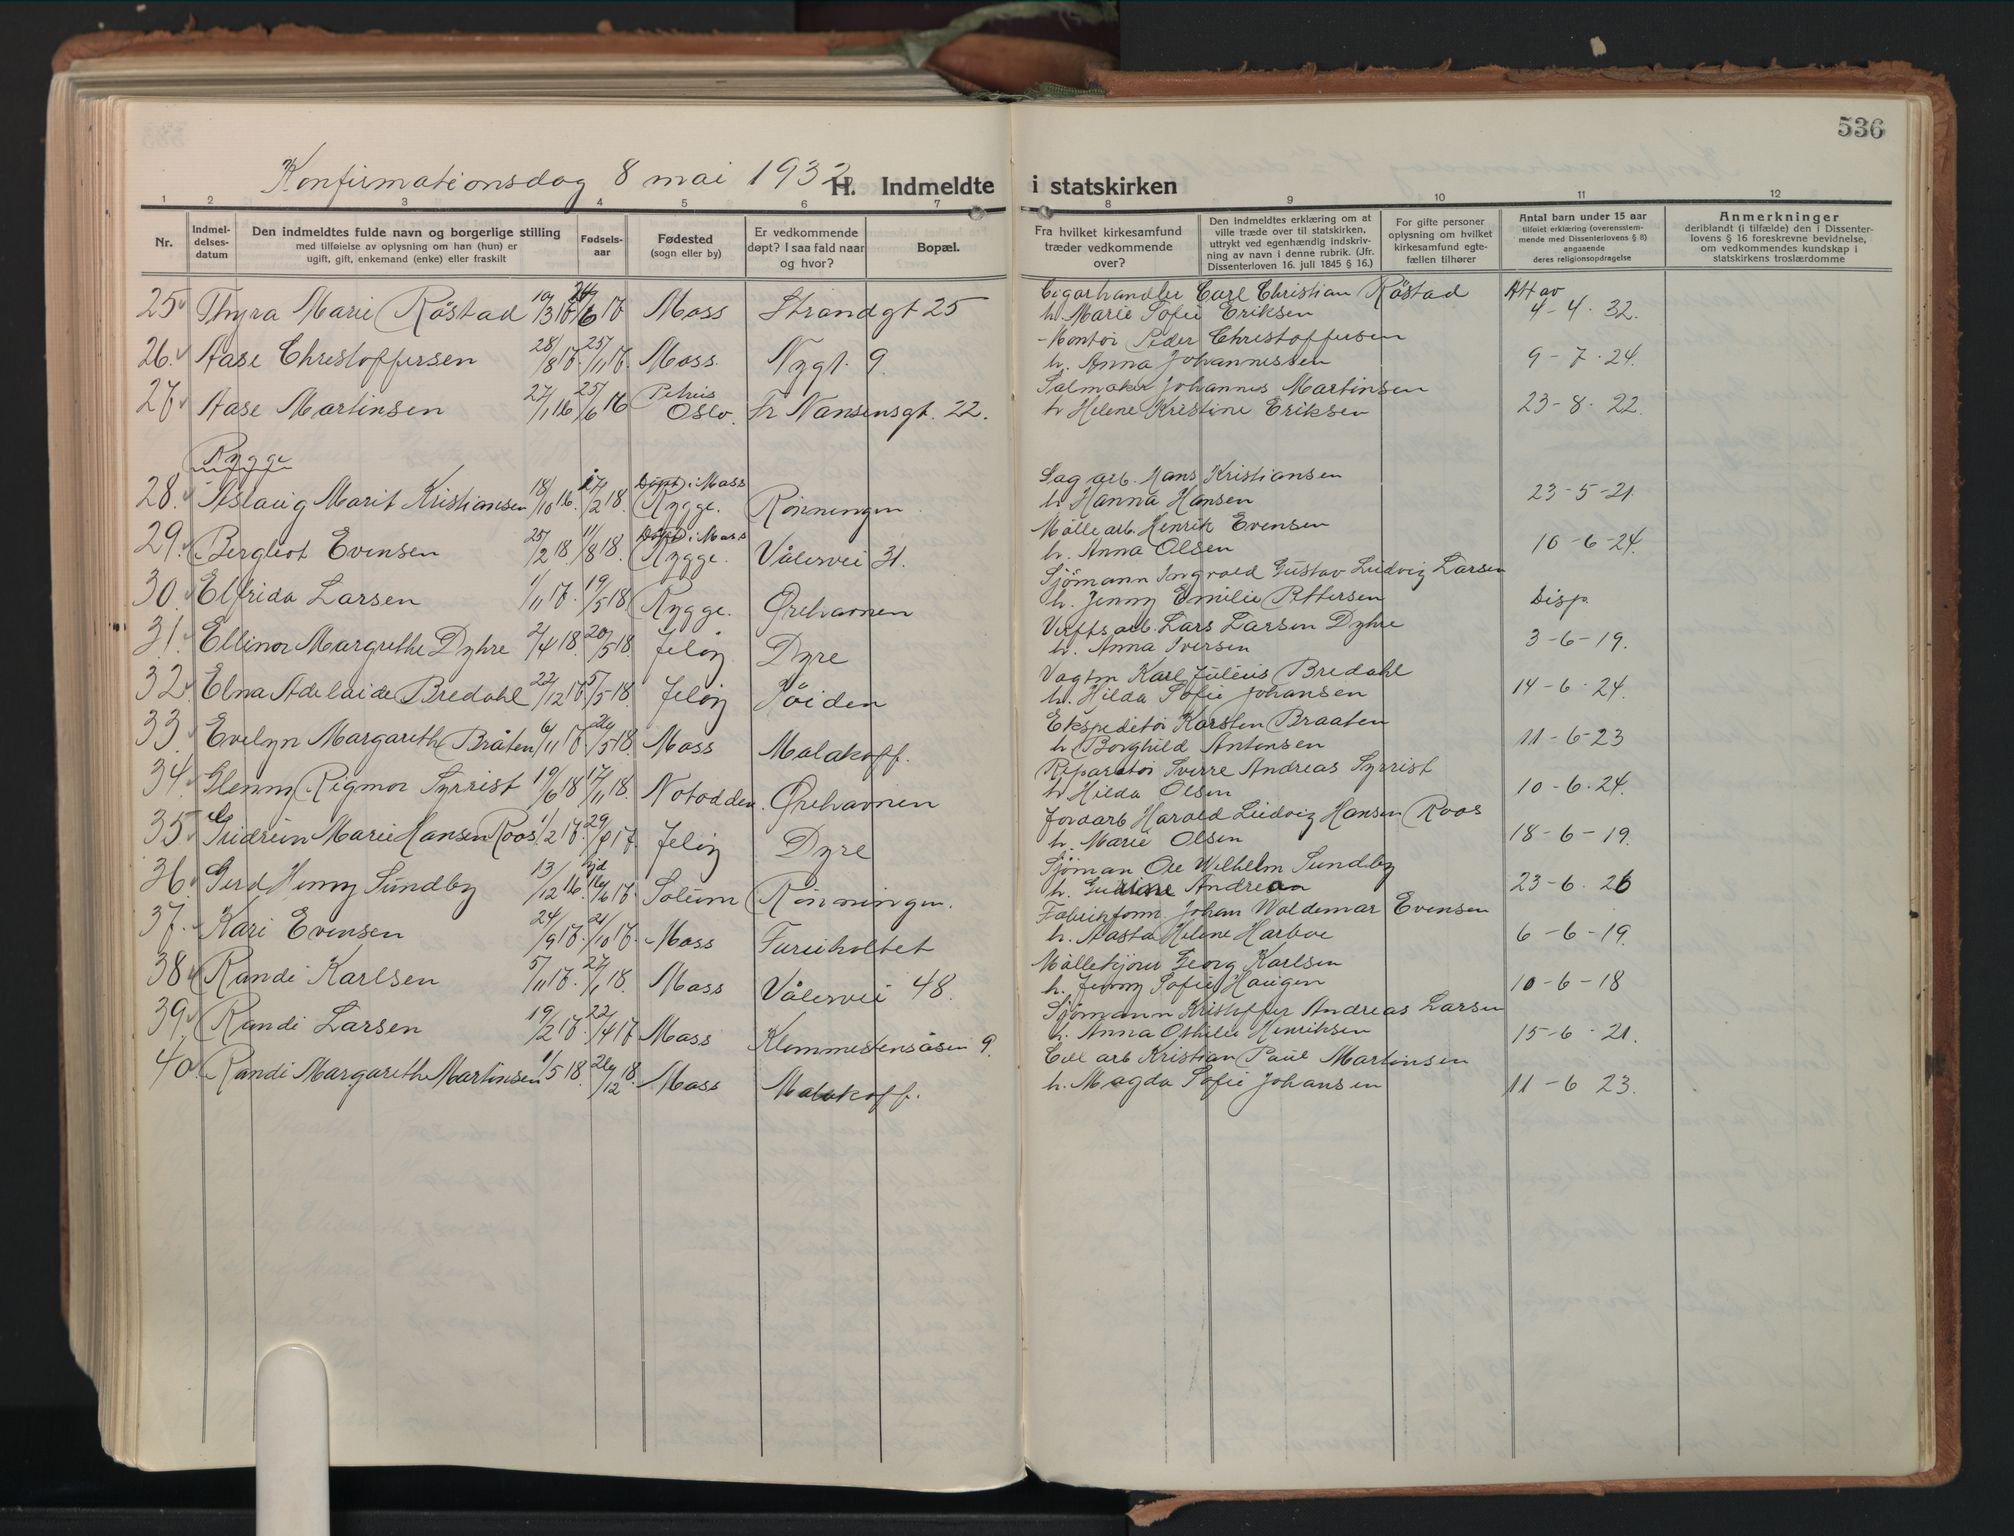 536
Konfirmationsdag 8 mai 1932
H. Indmeldte i statskirken
1 2 3 4 5 6 7 8 9 10 11 12
Nr.
Indmel-
delses-
datum
Den indmeldtes fulde navn og borgerlige stilling
med tilføielse av oplysning om han (hun) er
ugift, gift, enkemand (enke) eller fraskilt
Fødsels-
aar
Fødested
(sogn eller by)
Er vedkommende
døpt? I saa fald naar
og hvor?
Bopæl.
Fra hvilket kirkesamfund
træder vedkommende
over?
Den indmeldtes erklæring om at
ville træde over til statskirken,
uttrykt ved egenhændig indskriv-
ning av navn i denne rubrik. (Jfr.
Dissenterloven 16. juli 1845 § 16.)
For gifte personer
oplysning om hvilket
kirkesamfund egte-
fællen tilhører
Antal barn under 15 aar
tilføiet erklæring (overensstem-
mende med Dissenterlovens § 8)
angaaende
deres religionsopdragelse
Anmerkninger
deriblandt (i tilfælde) den i Dissenter-
lovens § 16 foreskrevne bevidnelse,
om vedkommendes kundskap i
statskirkens troslærdomme
25 Thyra Marie Røstad 19/3 17 24/6 17 Moss Strandgt 25 Cigarhandler Carl Christian Røstad Att av
h. Marie Sofie Eriksen 4-4-32.
26. Aase Christoffersen 28/8 17. 25/11 17. Moss. Nygt. 9. Montør Peder Christoffersen
h. Anna Johannessen 9-7-24.
27 Aase Martinsen 27/1 16 25/6 16 Petrus Oslo. Fr Nansensgt. 22. Salmaker Johannes Martinsen
h Helene Kristine Eriksen 23-8-22.
Rygge
28. Aslaug Marit Kristiansen 18/10 16. 17/2 18. Døpt i Moss Rygge. Rønningen Sagarb. Hans Kristiansen
h. Hanna Hansen 23-5-21.
29. Bergliot Evensen 25/2 18 11/8 18. Døpt i Moss Rygge. Vålervei 31. Møllearb. Henrik Evensen
h. Anna Olsen 10-6-24.
30. Elfrida Larsen 1/11 17. 19/5 18. Rygge. Ørehavnen Sjømann Ingvald Gustav Ludvig Larsen
h. Jenny Emilie Pettersen Disp.
31. Ellinor Margrethe Dyhre 2/4 18. 20/5 18. Jeløy Dyre Verftsarb. Lars Larsen Dyhre
h. Anna Iversen 3-6-19.
32. Elna Adelaide Bredahl 22/12 17. 5/5 18. Jeløy Røiden Vagtm Karl Julius Bredahl
h. Hilda Sofie Johansen 14-6-24.
33. Evelyn Margareth Bråten 6/11 17. 26/5 18. Moss Malakoff. Ekspeditør Karsten Braaten
h. Borghild Antonsen 11-6-23
34. Glenny Rigmor Syrrist 19/6 18 17/11 18. Notodden. Ørehavnen Reparatør Sverre Andreas Syrrist
h Hilda Olsen 10-6-24.
35. Gudrun Marie Hansen Roos. 1/2 17. 29/ 17. Jeløy Dyre Jordarb Harald Ludvig Hansen Roos
h. Marie Olsen 18-6-19.
36. Gerd Henny Sundby 13/12 16. hjd 16/6 17. Solum Rønningen. Sjøman Ole Wilhelm Sundby
h. 23-6-26
37. Kari Evensen 24/9 17. 21/10 17. Moss Furuholtet Fabrikform. Johan Waldemar Evensen
h. Aasta Helene Harboe 6-6-19.
38 Randi Karlsen 5/11 17. 27/1 18. Moss Vålervei 48. Møllekjører Georg Karlsen
h. Jenny Sofie Haugen 10-6-18
39. Randi Larsen 19/2 17 22/4 17 Moss Klommestensåsen 9. Sjømann Kristoffer Andreas Larsen
h. Anna Othilie Henriksen 15-6-21.
40. Randi Margareth Martinsen 1/5 18. 26/12 18. Moss Malakoff. Cell arb Kristian Paul Martinsen
h. Magda Sofie Johansen 11-6 23.